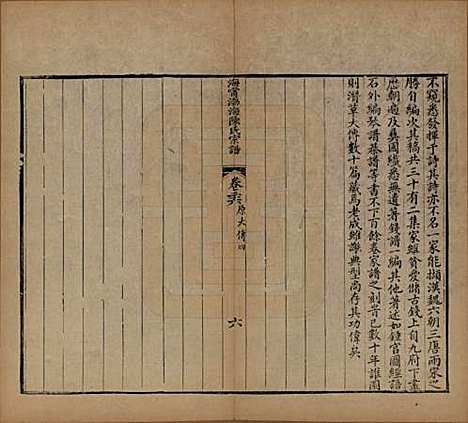 不窺悉發揮于詩其詩亦不名一家能擷漢魏六朝三唐兩宋之
勝自編次其稿共三十有二集家雖貧愛儲古錢上自九府下訖
歷朝處及彝國纖悉無遺著錢譜一編其他著述如鍾官圖經語
石外編琴譜棊譜等書不下百餘卷家譜之刻甞已數十年誰圖
則潛草大傳數十篇藏焉老成雖謝典型尚存其功偉矣
海甯渤海陳氏宗譜
卷二六
原大傳四
六